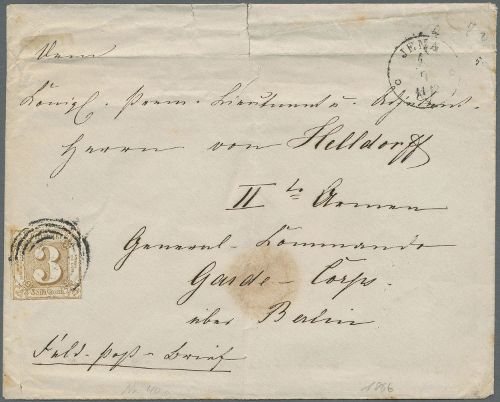 JENA
Dem
Königl. Prem. Lieutenant u. Adjutant
Herrn von Helldorff
II te Armee
General-Commando
Garde-Corps.
über Berlin
3
3 SILB. GROSCH.
Feld-Post-Brief
No 40
1866